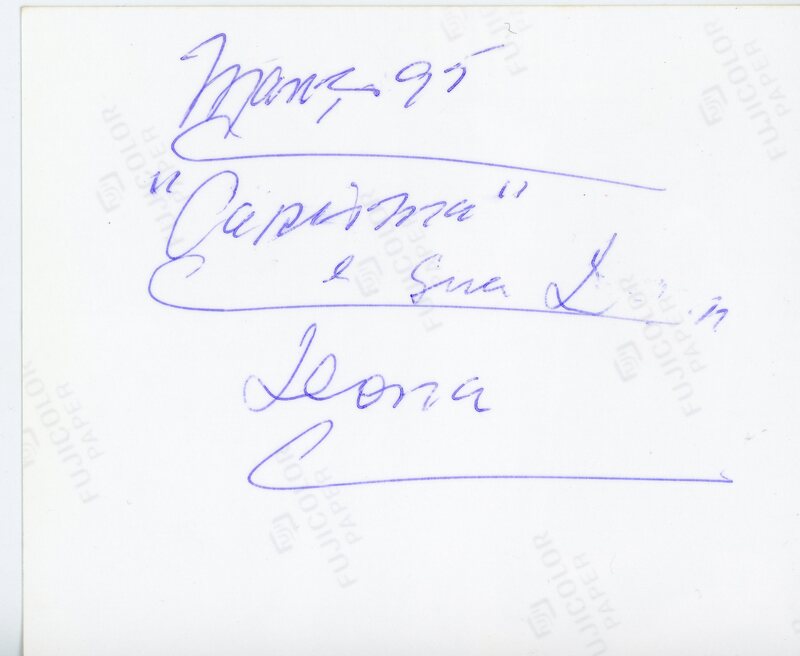 Março 95
"Capitma"
e sua L
Leona
FUJICOLOR PAPER
FUJICOLOR PAPER
FUJICOLOR PAPER
FUJICOLOR PAPER
FUJICOLOR PAPER
FUJICOLOR PAPER
FUJICOLOR PAPER
FUJICOLOR PAPER